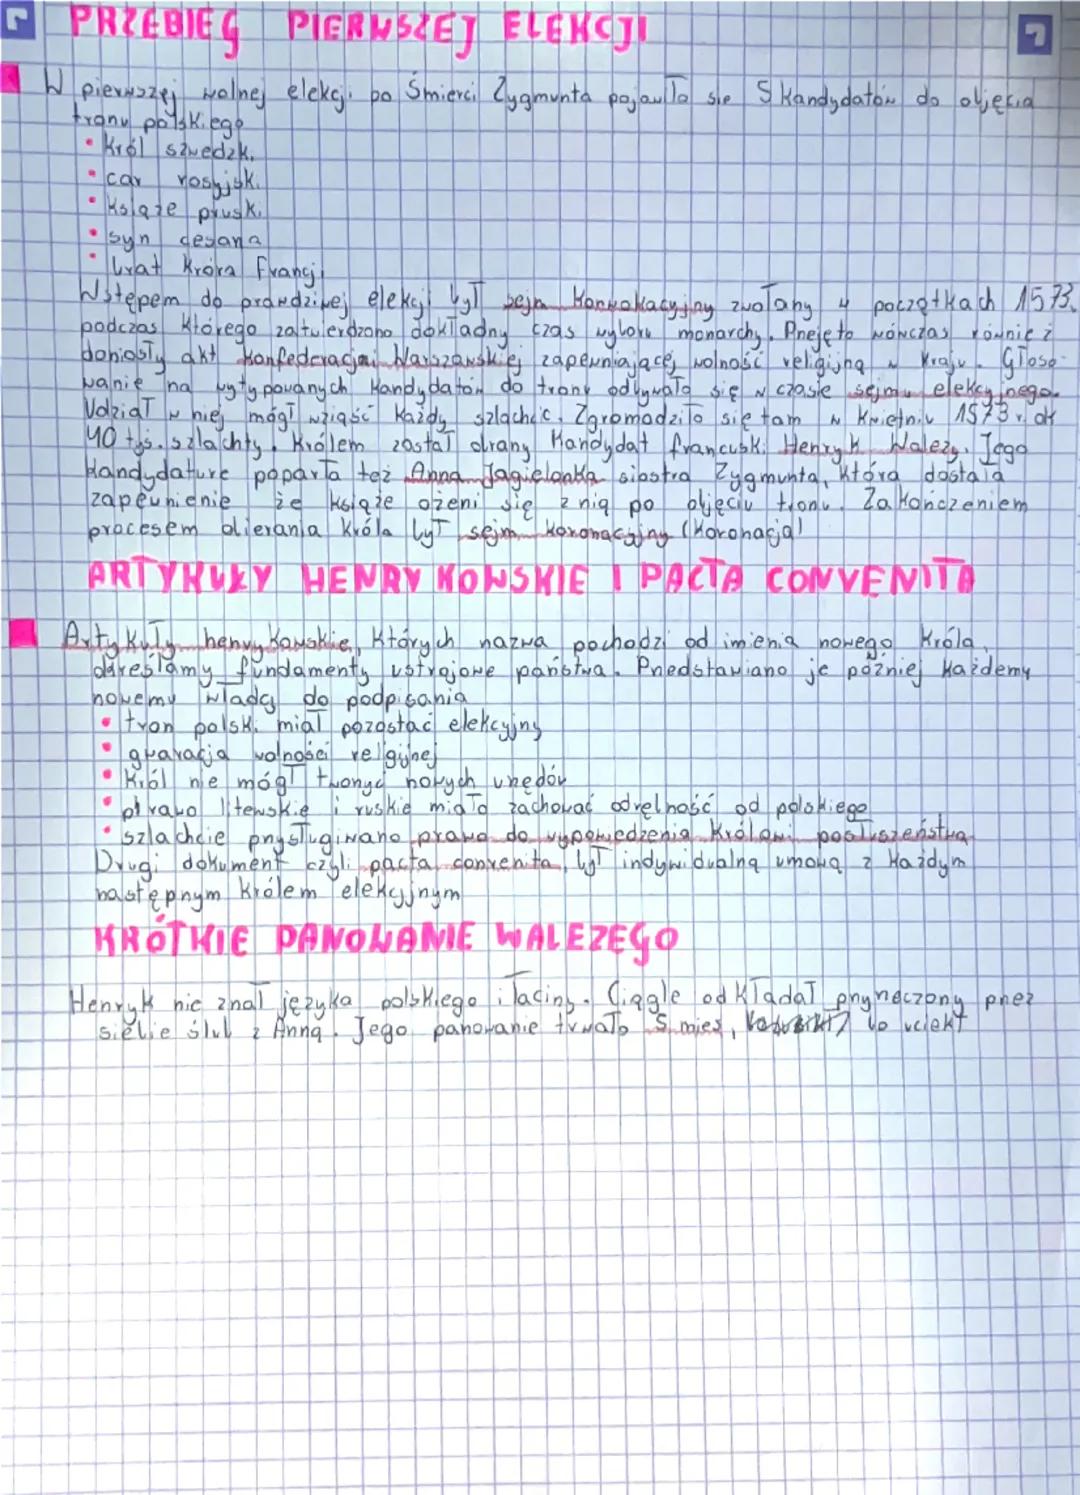 PRZEBIEG PIERWSZEJ ELEKCJI
W pierwszej wolnej elekcji po Śmierci Zygmunta pojawiło sie 5 kandydatów do objęcia
tronu polskiego
• Król szwedzki
• car rosyjski
• Książe pruski
• syn cesarza
• brat Króra Francji
Wstępem do prawdziwej elekcji był sejm Konwokacyjny zwołany w początkach 1573.
podczas Którego zatwierdzono dokładny czas wyboru monarchy. Przejęto wówczas również
doniosły akt Konfederacjai Warszawskiej zapewniającej wolność religijną w Kraju. Głoso-
wanie na wytypowanych Kandydatów do tronu odbywało się w czasie sejmu elekcyjnego.
Udział w niej mógł wziąść Każdy szlachcic. Zgromadziło się tam w Kwietniu 1573 r. ok
40 tyś. szlachty. Królem został obrany Kandydat francuski Henryk Walezy. Jego
Kandydature poparła też Anna Jagielonka siostra Zygmunta, Która dostała
zapewnienie że książe ożeni się z nią po objęciu tronu. Zakończeniem
procesem obierania Króla był sejm Koronacyjny (Koronacja)
ARTYKUŁY HENRYKOWSKIE I PACTA CONVENITA
Artykuły henrykowskie, Których nazwa pochodzi od imienia nowego Króla,
określamy fundamenty ustrojowe państwa. Przedstawiano je później Każdemy
nowemu władcy do podpisania
• tron polski miał pozostać elekcyjny
• gwaracja wolności religijnej
• Król nie mógł tworzyć nowych urzędów
• prawo litewskie i ruskie miało zachować odrębność od polskiego
• szlachcie przysługiwano prawo do wypowiedzenia Królowi posłuszeństwa
Drugi dokument czyli pacta convenita, był indywidualną umową z Każdym
następnym Królem elekcyjnym
KRÓTKIE PANOWANIE WALEZEGO
Henryk nie znał języka polskiego i łaciny. Ciągle odkładał przyrzeczony przez
siebie ślub z Anną. Jego panowanie trwało 5 mies, bo uciekł